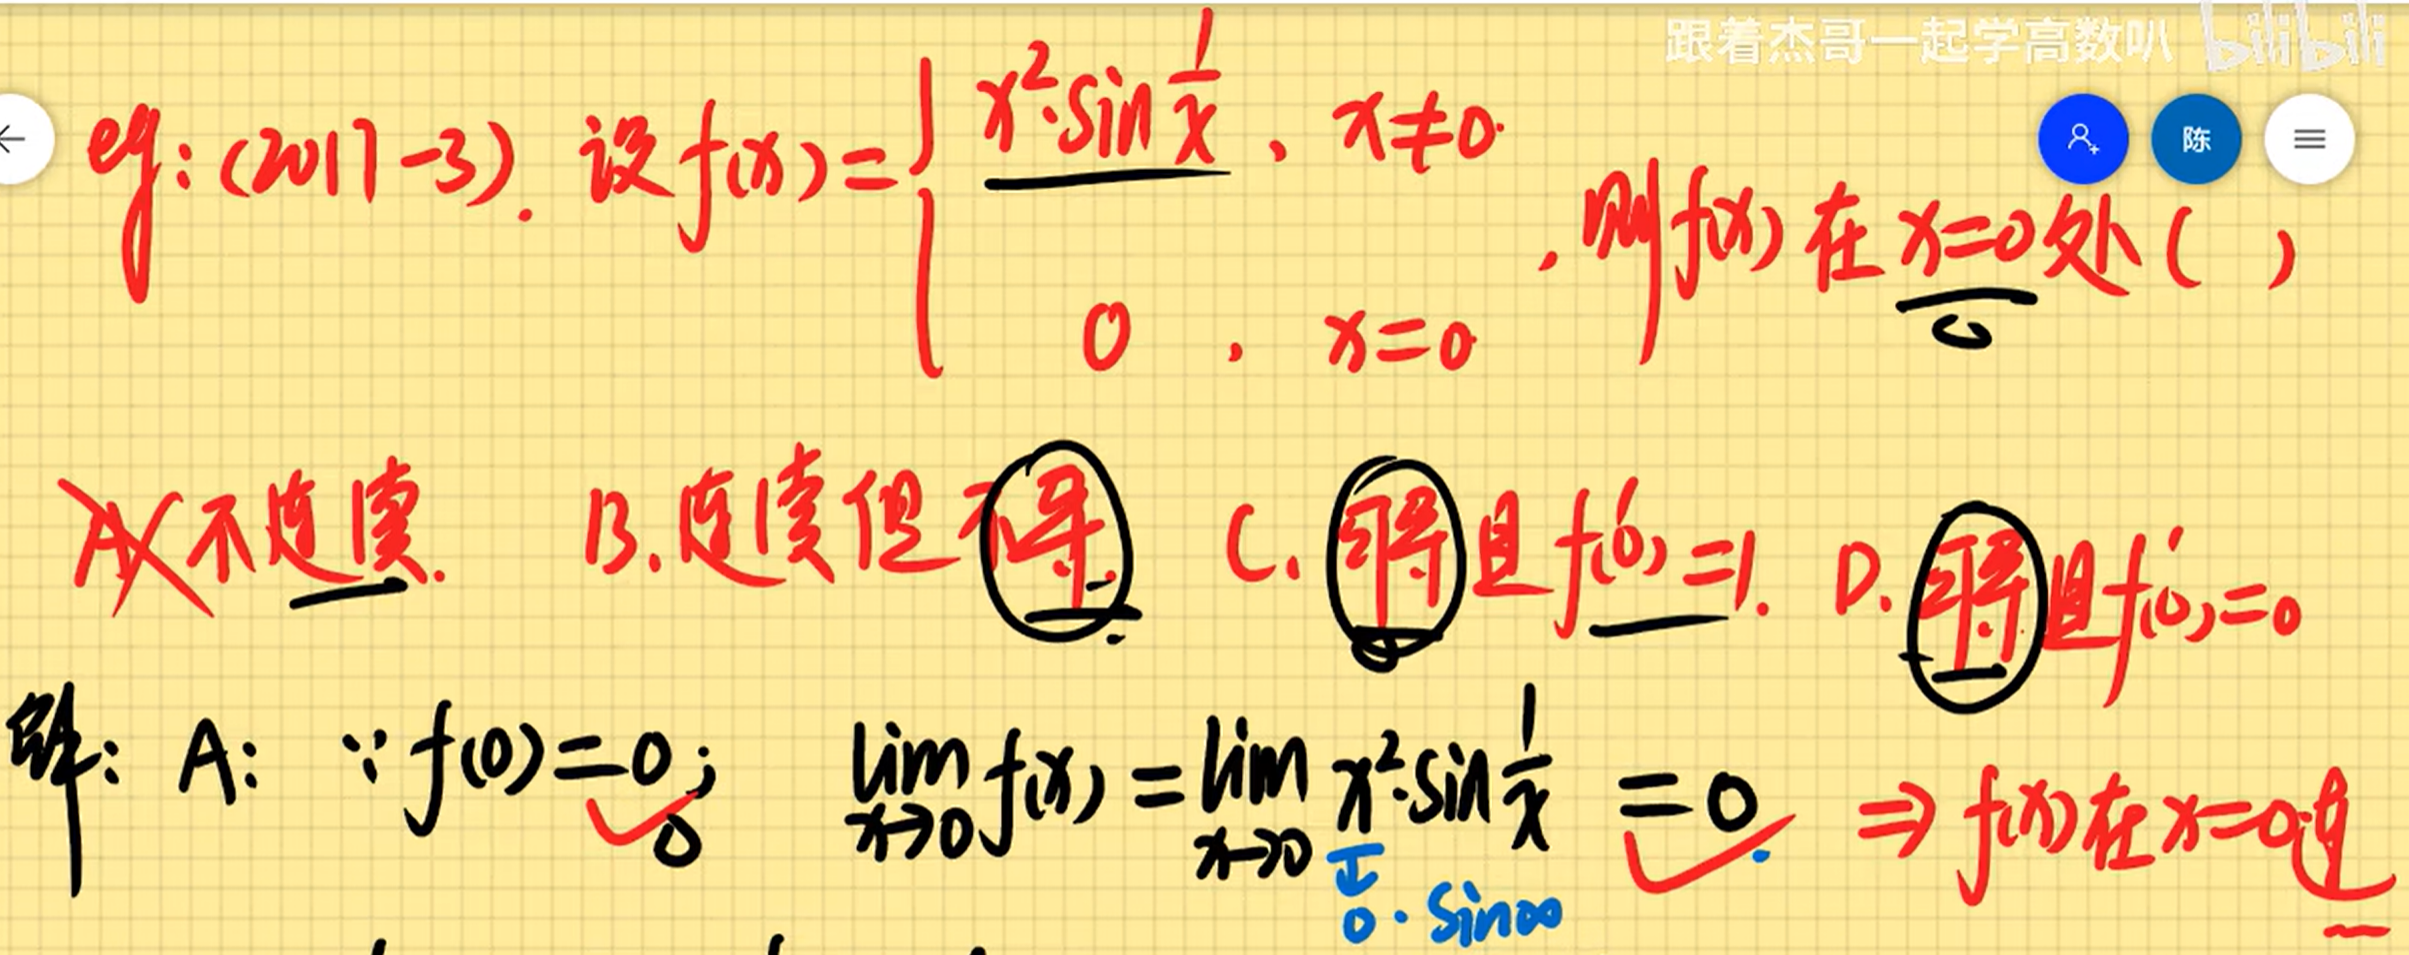 跟着杰哥一起学高数叭 bilibili
陈
eg:(2017-3). 设f(x)={ x²·sin 1/x , x≠0.
0 , x=0
, 则f(x)在x=0处( )
A. 不连续. B. 连续但不可导. C. 可导且f'(0)=1. D. 可导且f'(0)=0
解: A: ∵f(0)=0; lim x→0 f(x)=lim x→0 x²·sin 1/x =0 ⇒f(x)在x=0连
0
0·sin∞